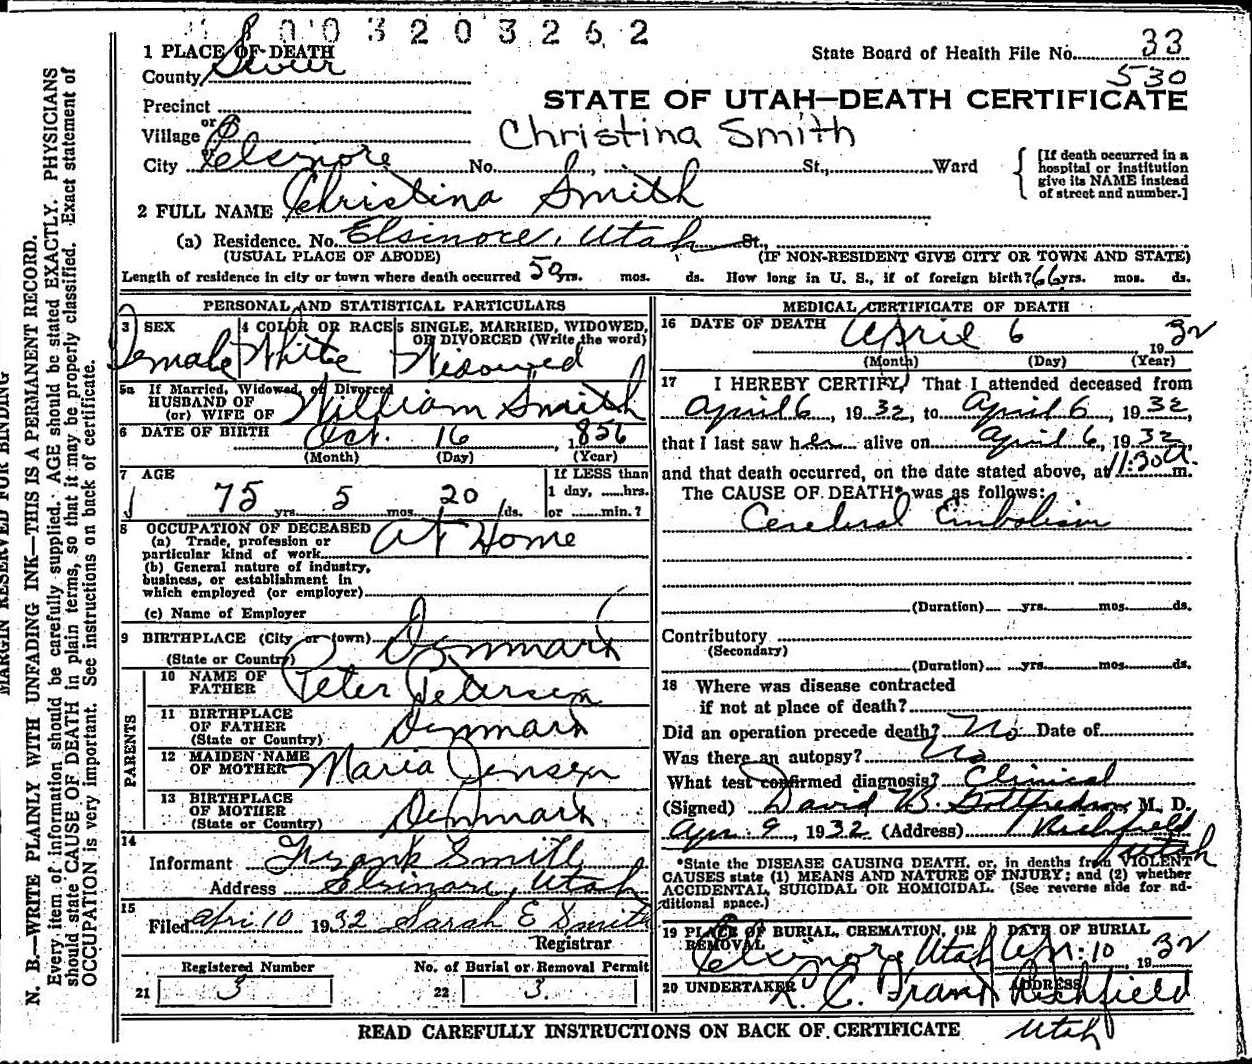 0 0 3 2 0 3 2 6 2
1 PLACE OF DEATH
State Board of Health File No. 33
County Sevier
530
Precinct
STATE OF UTAH—DEATH CERTIFICATE
or
Village
Christina Smith
City Elsinore No. St., Ward
[If death occurred in a hospital or institution give its NAME instead of street and number.]
2 FULL NAME Christina Smith
(a) Residence. No. Elsinore, Utah St.,
(USUAL PLACE OF ABODE) (IF NON-RESIDENT GIVE CITY OR TOWN AND STATE)
Length of residence in city or town where death occurred 50 yrs. mos. ds. How long in U. S., if of foreign birth? 66 yrs. mos. ds.
PERSONAL AND STATISTICAL PARTICULARS
3 SEX
Female
4 COLOR OR RACE
White
5 SINGLE, MARRIED, WIDOWED, OR DIVORCED (Write the word)
Widowed
5a If Married, Widowed, or Divorced
HUSBAND OF
(or) WIFE OF William Smith
6 DATE OF BIRTH Oct. 16 1856
(Month) (Day) (Year)
7 AGE
75 yrs. 5 mos. 20 ds.
If LESS than
1 day, ......hrs.
or ......min.?
8 OCCUPATION OF DECEASED
(a) Trade, profession or
particular kind of work At Home
(b) General nature of industry,
business, or establishment in
which employed (or employer)
(c) Name of Employer
9 BIRTHPLACE (City or town) Denmark
(State or Country)
PARENTS
10 NAME OF
FATHER Peter Petersen
11 BIRTHPLACE
OF FATHER Denmark
(State or Country)
12 MAIDEN NAME
OF MOTHER Maria Jensen
13 BIRTHPLACE
OF MOTHER Denmark
(State or Country)
14
Informant Frank Smith
Address Elsinore, Utah
15
Filed Apri 10 1932 Sarah E Smith
Registrar
Registered Number
21 3
No. of Burial or Removal Permit
22 3
MEDICAL CERTIFICATE OF DEATH
16 DATE OF DEATH April 6 1932
(Month) (Day) (Year)
17 I HEREBY CERTIFY, That I attended deceased from
April 6, 1932, to April 6, 1932,
that I last saw her alive on April 6, 1932,
and that death occurred, on the date stated above, at 11:30 a. m.
The CAUSE OF DEATH* was as follows:
Cerebral Embolism
(Duration) yrs. mos. ds.
Contributory
(Secondary)
(Duration) yrs. mos. ds.
18 Where was disease contracted
if not at place of death?
Did an operation precede death? No Date of
Was there an autopsy? No
What test confirmed diagnosis? Clinical
(Signed) David B. Gottfredson M. D.
Apr. 9, 1932 (Address) Richfield
Utah
*State the DISEASE CAUSING DEATH, or, in deaths from VIOLENT
CAUSES state (1) MEANS AND NATURE OF INJURY; and (2) whether
ACCIDENTAL, SUICIDAL OR HOMICIDAL. (See reverse side for ad-
ditional space.)
19 PLACE OF BURIAL, CREMATION, OR
REMOVAL
Elsinore Utah
DATE OF BURIAL
Apr. 10, 1932
20 UNDERTAKER
ADDRESS
Richfield
Utah
READ CAREFULLY INSTRUCTIONS ON BACK OF CERTIFICATE
MARGIN RESERVED FOR BINDING
N. B.—WRITE PLAINLY WITH UNFADING INK—THIS IS A PERMANENT RECORD.
Every item of information should be carefully supplied. AGE should be stated EXACTLY. PHYSICIANS
should state CAUSE OF DEATH in plain terms, so that it may be properly classified. Exact statement of
OCCUPATION is very important. See instructions on back of certificate.